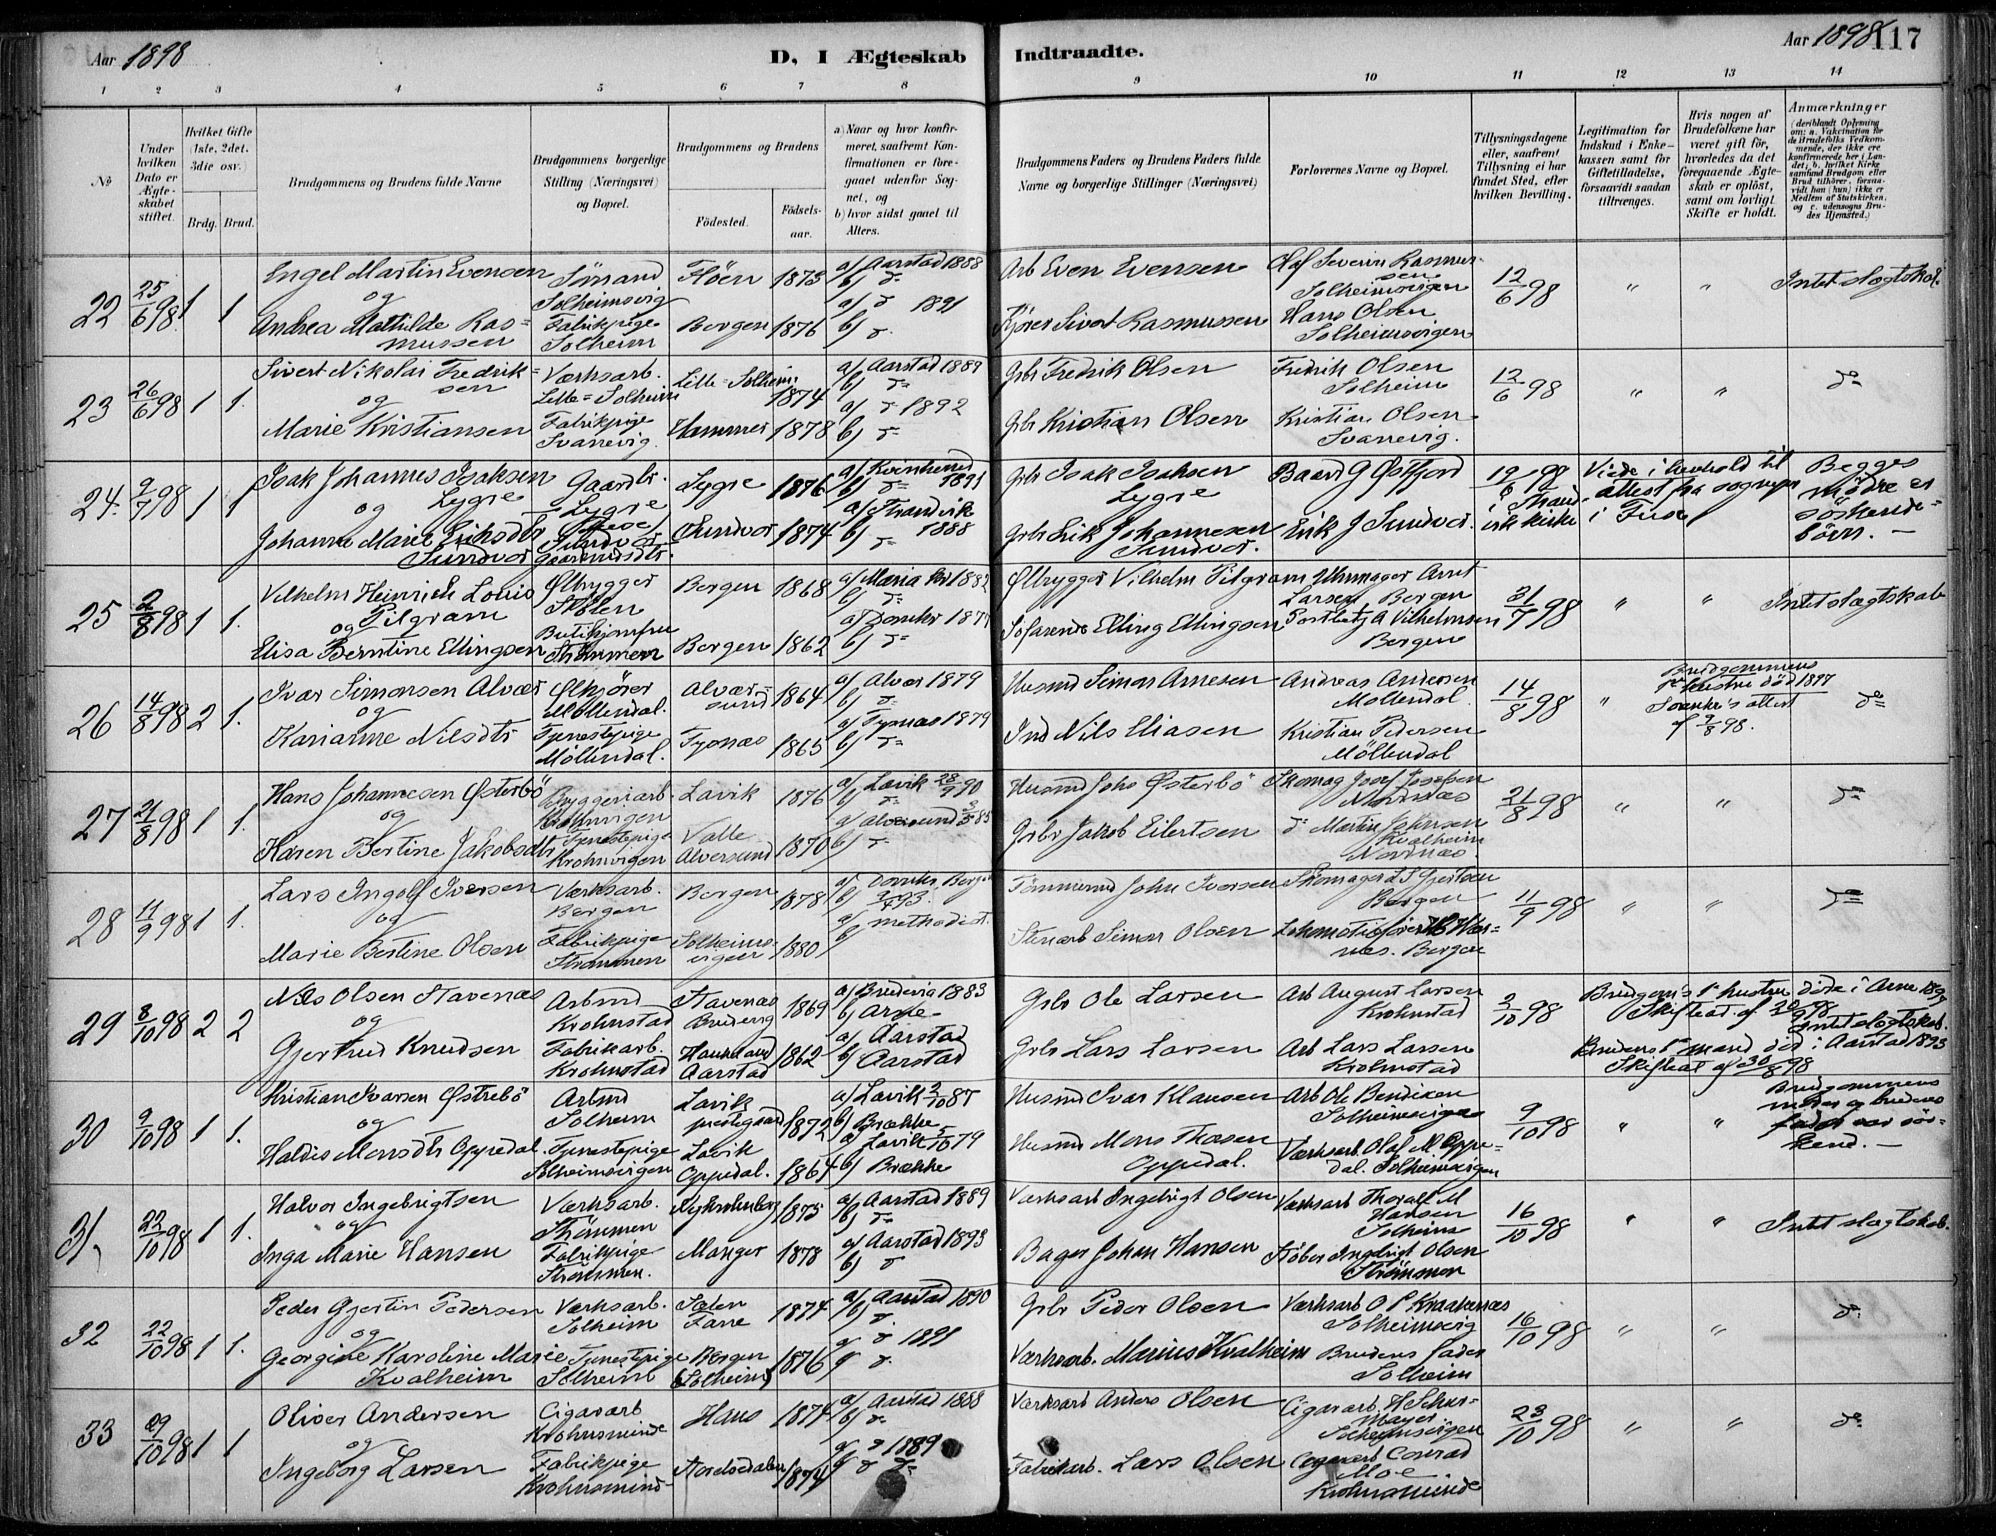 Aar 1898
D. I Ægteskab Indtraadte.
Aar 1898
117
1 2 3 4 5 6 7 8 9 10 11 12 13 14
No
Under hvilken Dato er Ægteskabet stiftet.
Hvilket Gifte (1ste, 2det, 3die osv.)
Brdg. Brud.
Brudgommens og Brudens fulde Navne
Brudgommens borgerlige Stilling (Næringsvei) og Bopæl.
Brudgommens og Brudens
Födested.
Födsels-aar.
a) Naar og hvor konfirmeret, saafremt Konfirmationen er foregaaet udenfor Sognet, og
b) hvor sidst gaaet til Alters.
Brudgommens Faders og Brudens Faders fulde Navne og borgerlige Stillinger (Næringsvei)
Forlovernes Navne og Bopæl.
Tillysningsdagene eller, saafremt Tillysning ei har fundet Sted, efter hvilken Bevilling.
Legitimation for Indskud i Enkekassen samt for Giftetilladelse, forsaavidt saadan tiltrænges.
Hvis nogen af Brudefolkene har været gift för, hvorledes da det foregaaende Ægteskab er oplöst, samt om lovligt Skifte er holdt.
Anmærkninger
22 25/6 98 1 1
Engel Martin Evensen
og
Andrea Mathilde Rasmussen
Sömand Solheimsvig
Fabrikpige Solheim
Flöen 1873
Bergen 1876
a) Aarstad 1888
b) d
a) d 1891
b) d
Arb Even Evensen
Sivert Rasmussen
Olaf Severin Rasmussen Solheimsvigen
Hans Olsen Solheimsvigen
12/6 98 " " Intet slægtskab.
23 26/6 98 1 1.
Sivert Nikolai Fredriksen
og
Marie Kristiansen
Værksarb. Lille=Solheim
Fabrikpige Svanevig.
Lille=Solheim 1874
Hammer 1878
a) Aarstad 1889
b) d=
a) d 1892
b) d=
Grbr Fredrik Olsen
Grbr Kristian Olsen
Fredrik Olsen Solheim
Kristian Olsen Svanevig.
12/6 98 " " do
24. 9/7 98 1 1
Isak Johannes Isaksen Lygre
og
Johanne Marie Eriksdtr Sundvor
Gaardbr. Lygre
Sundvor Gaardmdsdtr.
Lygre 1876
Sundvor 1874
a) Kvinherred 1891
b) d=
a) Strandvik 1888
b) d=
Grbr Isak Isaksen Lygre
Grbr Erik Johannesen Sundvor.
Baard G Østfjord
Erik J Sundvor.
19/6 98 i Strandvik kirke
Viede i henhold til attest fra sognepr i Fuse
Begges mödre er söskendebörn. —
25 2/8 98 1 1.
Vilhelm Heinrich Louis Pilgram
og
Elisa Berntine Ellingsen
Ølbrygger Stölen
Butikjomfru Strömmen
Bergen 1868
Bergen 1862
a) Maria kr 1882
b) d=
a) Domkr 1877
b) d=
Ølbrygger Vilhelm Pilgram
Söfarende Elling Ellingsen
Uhrmager Arnt Larsen Bergen
A Vilhelmsen Bergen
31/7 98 " " Intet slægtskab
26 14/8 98 2 1.
Ivar Simonsen Alvær
og
Karianne Nilsdtr
Ølkjörer Möllendal.
Tjenestepige Möllendal.
Alværsund 1864
Tysnæs 1865
a) Alver 1879
b) d=
a) Tysnæs 1879
b) d=
Husmd Simon Arnesen
Ind Nils Eliasen
Andreas Andersen Möllendal
Kristian Pedersen Möllendal
14/8 98 "
Brudgommens 1e hustru död 1897
attest af 9/8 98.
d=
27 21/8 98 1 1.
Hans Johannesen Østerbö
og
Karen Bertine Jakobsdtr
Bryggeriarb. Krohnvigen
Tjenestepige Krohnvigen
Lavik 1876
Valle Alversund 1870
a) Lavik 28/9 90
b) d=
a) Alversund 85
b) d=
Husmd Johs Østerbö
Grbr Jakob Eilertsen
Skomag Josef Josefsen Nordnæs
d Martin Johnsen Kvalheim Nordnæs.
21/8 98 " " d=
28 11/9 98 1 1.
Lars Ingolf Iversen
og
Marie Bertine Olsen
Værksarb. Bergen
Fabrikpige Strömmen
Bergen 1878
Solheimsvigen 1880
a) Domkr. Bergen 93.
b)
a) methodist.
b)
Tömmermd John Iversen
Stenarb Simon Olsen
Skomager L S Gjertsen Bergen
Bergen
11/9 98 " " d=
29 8/10 98 2 2
Nils Olsen Stavenæs
og
Gjertrud Knudsen
Arbmd Krohnstad
Fabrikarb. Krohnstad
Stavenæs Bredevig 1869
Haukeland Aarstad 1862
a) Bredevig 1883
b) Arne
a) Aarstad
b) Aarstad
Grbr Ole Larsen
Grbr Lars Larsen
Arb August Larsen Krohnstad
Arb Lars Larsen Krohnstad
2/10 98
Brudgom's 1e hustru döde i Arne 1897
Intet slægtskab.
Brudens 1e mand död i Aarstad 1893
Skifteat af 30/8 98
30 9/10 98 1 1.
Kristian Ivarsen Østrebö
og
Haldis Monsdtr Oppedal.
Arbmd Solheim
Tjenestepige Solheimsvigen
Lavik prestegaard 1872
Lavik Oppedal. 1864
a) Lavik 2/10 87
b) Brække
a) Lavik 5/10 79
b) Brække
Husmd Ivar Klausen
Husmd Mons Thosen Oppedal.
Arb Ole Bendixen Solheimsvigen
Værksarb. Olaf M. Oppedal. Solheimsvigen
9/10 98 " "
Brudgommens moder og brudens fader var söskend. —
31 22/10 98 1 1.
Halvor Ingebrigtsen
og
Inga Marie Hansen
Værksarb. Strömmen
Fabrikpige Strömmen.
Nykrohnborg 1875
Manger 1878
a) Aarstad 1889
b) d=
a) Aarstad 1893
b) d
Værksarb Ingebrigt Olsen
Bager Johan Hansen
Værksarb Thorald M Hansen Solheim
Stöber Ingebrigt Olsen Strömmen
16/10 98 " " Intet slægtskab.
32 22/10 98 1 1.
Peder Gjertin Pedersen
og
Georgine Karoline Marie Kvalheim
Værksarb. Solheim
Tjenestepige Solheim
Sælen Fane 1874
Bergen (Solheim) 1876
a) Aarstad 1890
b) d.
a) d 1891
b) d.
Grbr Peder Olsen
Værksarb. Marius Kvalheim
Værksarb O P Kraakenæs Solheimsvig
Brudens fader Solheim
16/10 98 " " d:
33 29/10 98 1 1
Oliver Andersen
og
Ingeborg Larsen
Cigararb Krohnsminde
Fabrikpige Krohnsminde
Haus 1874
1874
a) Aarstad 1888
b) d=
a) d 1889
b) d d=
Værksarb Anders Olsen
Fabrikarb. Lars Olsen
Cigararb. H Schusmayer Solheimsvigen
Cigararb Conrad Moe. Krohnsminde
23/10 98 " " do